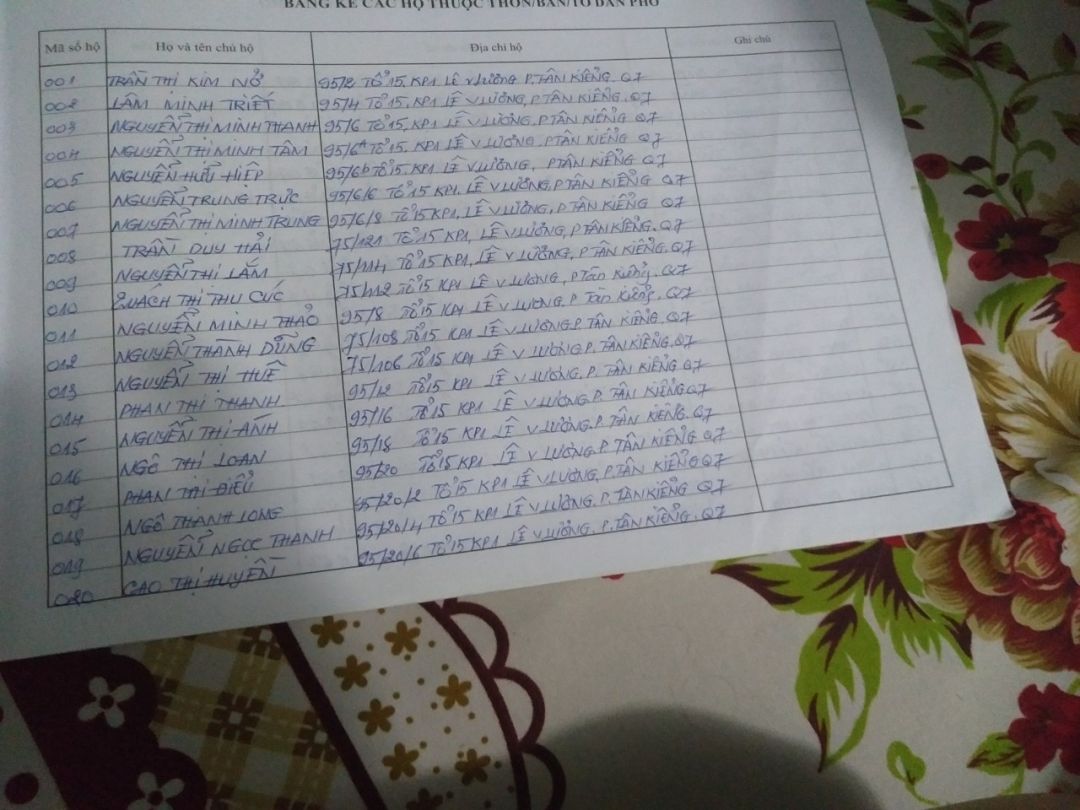 BẢNG KÊ CÁC HỘ THUỘC THÔN/BẢN/TỔ DÂN PHỐ
Mã số hộ Họ và tên chủ hộ Địa chỉ hộ Ghi chú
001 TRẦN THỊ KIM NỞ 95/2 TỔ 15, KP1 LÊ V LƯƠNG P. TÂN KIỂNG. Q7
002 LÂM MINH TRIẾT 95/4 TỔ 15, KP1 LÊ V LƯƠNG, P TÂN KIỂNG. Q7
003 NGUYỄN THỊ MINH THANH 95/6 TỔ 15, KP1 LÊ V LƯƠNG, P TÂN KIỂNG. Q7
004 NGUYỄN THỊ MINH TÂM 95/6A TỔ 15. KP1 LÊ V LƯƠNG. P TÂN KIỂNG Q7
005 NGUYỄN HỮU HIỆP 95/6b TỔ 15. KP1 LÊ V LƯƠNG, P TÂN KIỂNG Q7
006 NGUYỄN TRUNG TRỰC 95/6/6 TỔ 15 KP1. LÊ V LƯƠNG, P TÂN KIỂNG Q7
007 NGUYỄN THỊ MINH TRUNG 95/6/8 TỔ 15 KP1, LÊ V LƯƠNG, P TÂN KIỂNG Q7
008 TRẦN DUY HẢI 75/121 TỔ 15 KP1, LÊ V LƯƠNG, P TÂN KIỂNG. Q7
009 NGUYỄN THỊ LẮM 75/114 TỔ 15 KP1, LÊ V LƯƠNG, P TÂN KIỂNG. Q7
010 QUÁCH THỊ THU CÚC 75/112 TỔ 15 KP1 LÊ V LƯƠNG, P Tân Kiểng. Q7
011 NGUYỄN MINH THẢO 95/8 TỔ 15 KP1 LÊ V LƯƠNG, P Tân Kiểng. Q7
012 NGUYỄN THÀNH DŨNG 75/108 TỔ 15 KP1 LÊ V LƯƠNG P. TÂN KIỂNG. Q7
013 NGUYỄN THỊ HUÊ 75/106 TỔ 15 KP1 LÊ V LƯƠNG P. TÂN KIỂNG, Q7
014 PHAN THỊ THANH 95/12 TỔ 15 KP1 LÊ V LƯƠNG, P. TÂN KIỂNG. Q7
015 NGUYỄN THỊ ÁNH 95/16 TỔ 15 KP1 LÊ V LƯƠNG P. TÂN KIỂNG Q7
016 NGÔ THỊ LOAN 95/18 TỔ 15 KP1 LÊ V LƯƠNG. P. TÂN KIỂNG. Q7
017 PHAN THỊ ĐIỂU 95/20 TỔ 15 KP1 LÊ V LƯƠNG P. TÂN KIỂNG Q7
018 NGÔ THANH LONG 95/20/2 TỔ 15 KP1 LÊ V LƯƠNG, P. TÂN KIỂNG Q7
019 NGUYỄN NGỌC THANH 95/20/4 TỔ 15 KP1 LÊ V LƯƠNG. P. TÂN KIỂNG Q7
020 CAO THỊ HUYỀN 95/20/6 TỔ 15 KP1 LÊ V LƯƠNG. P. TÂN KIỂNG. Q7